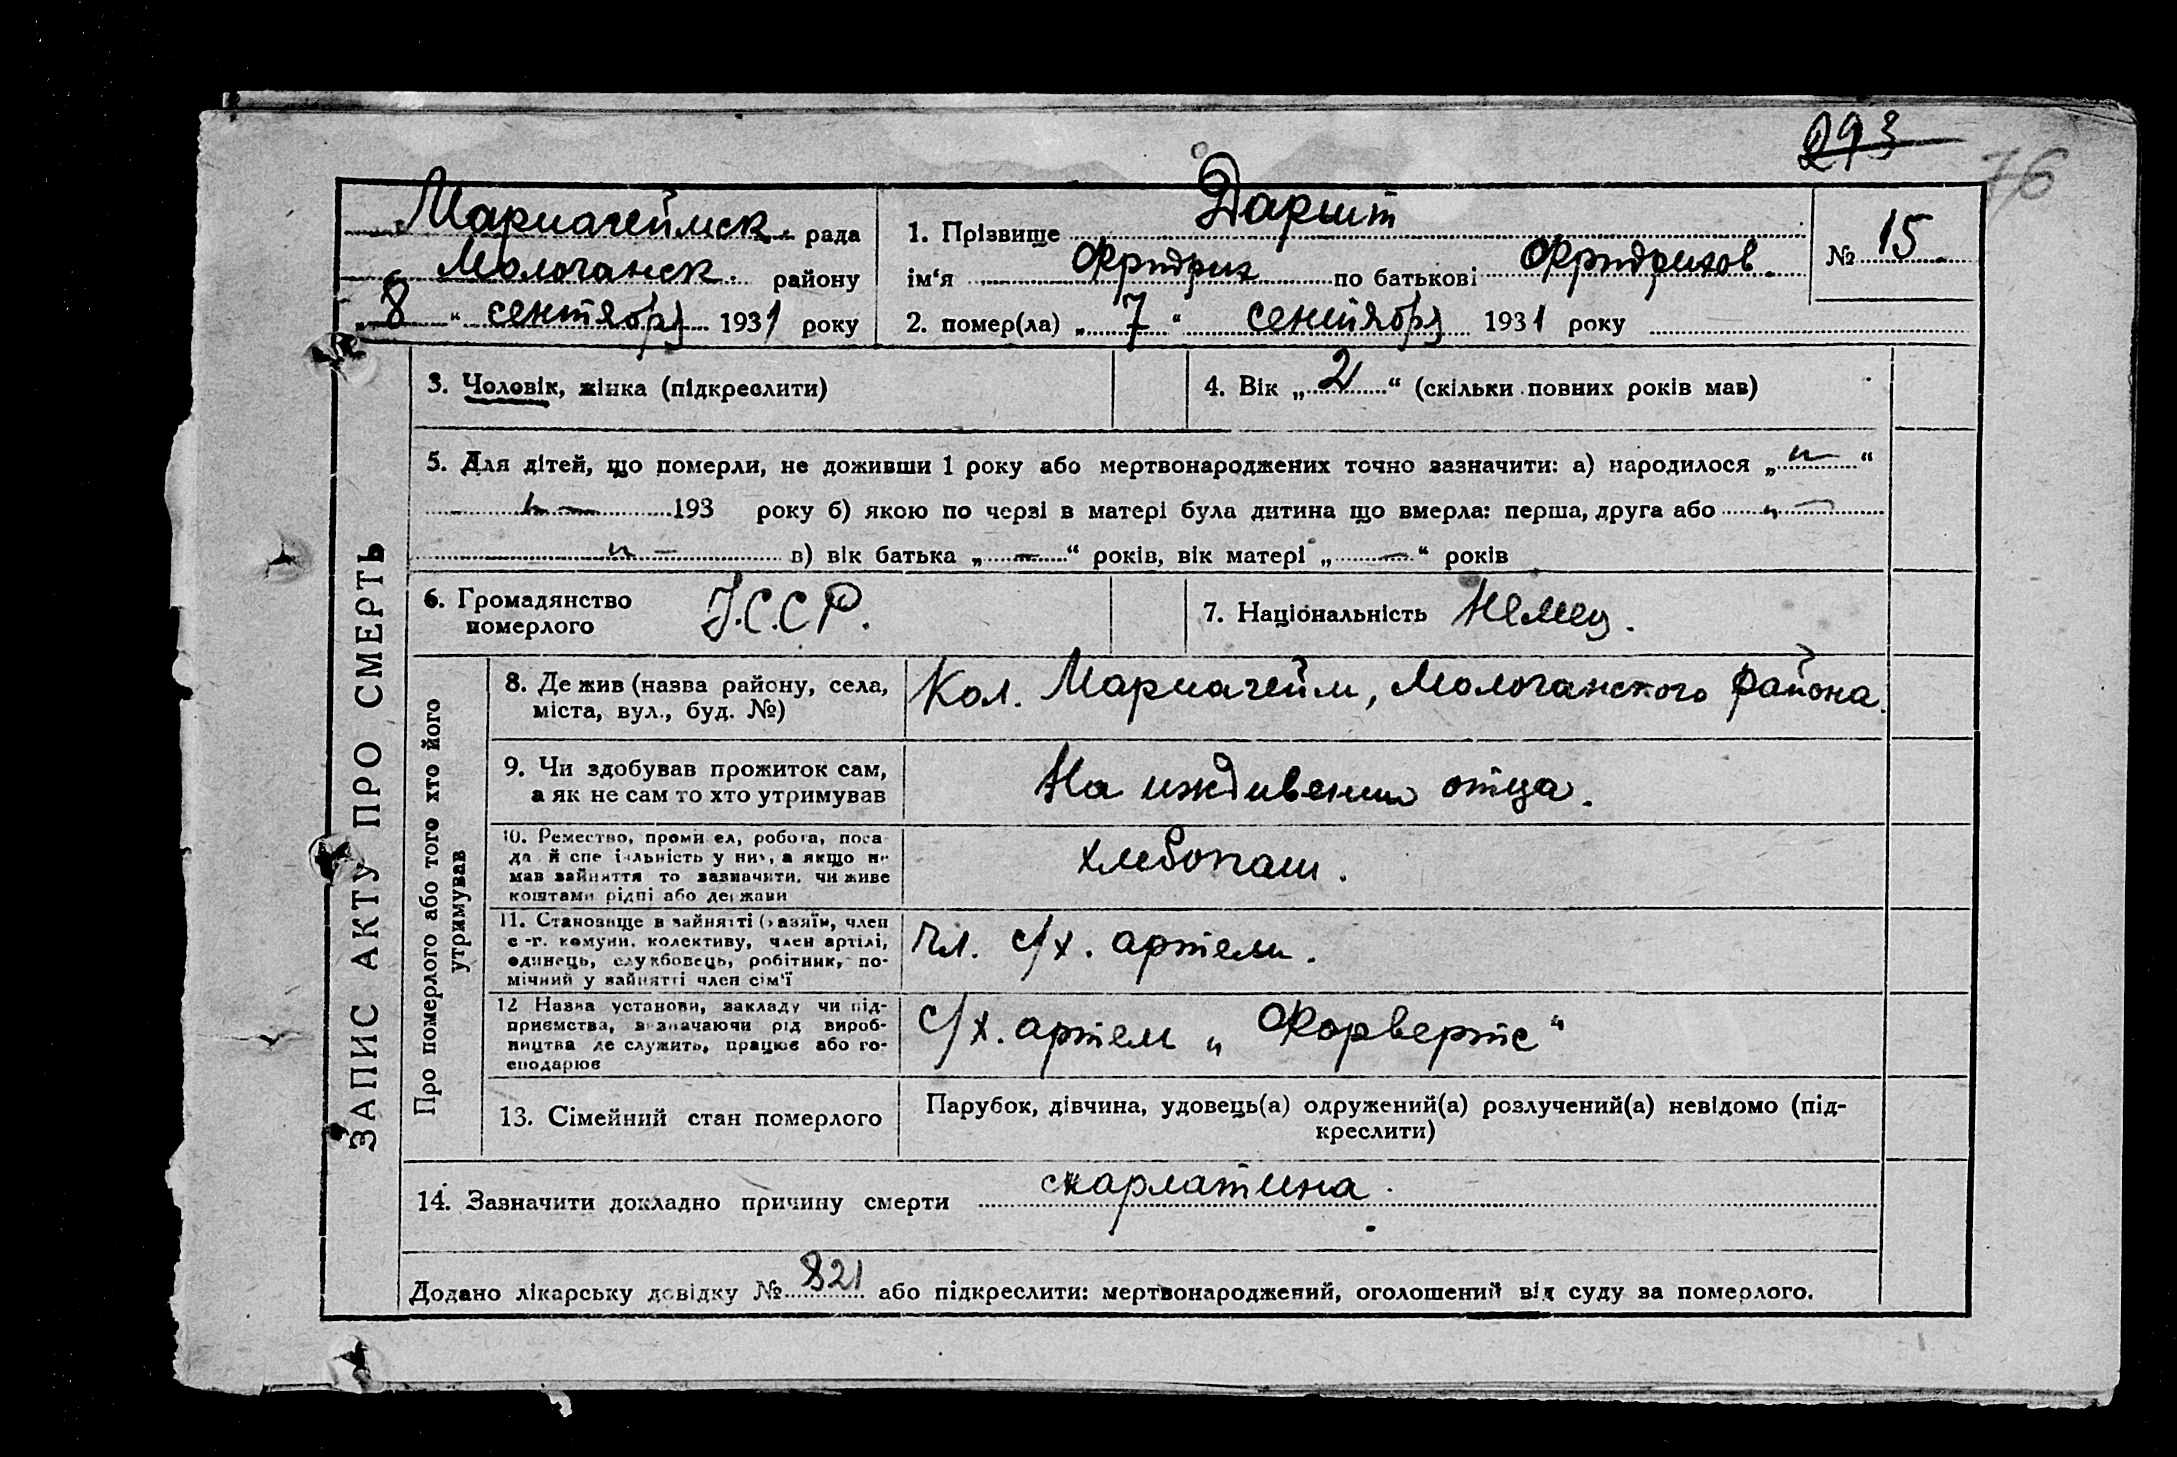 293
76
Мариагеймск. рада
Молочанск. району
„8“ сентября 1931 року
1. Прізвище Дармт
ім‘я Фридрих по батькові Фридрихов.
№ 15
2. помер(ла) „7“ сентября 1931 року
3. Чоловік, жінка (підкреслити)
4. Вік „2“ (скільки повних років мав)
5. Для дітей, що померли, не доживши 1 року або мертвонароджених точно зазначити: а) народилося „ “
193 року б) якою по черзі в матері була дитина що вмерла: перша, друга або
в) вік батька „—“ років, вік матері „—“ років
6. Громадянство
померлого
У.С.С.Р.
7. Національність Немец.
ЗАПИС АКТУ ПРО СМЕРТЬ
Про померлого або того хто його
утримував
8. Де жив (назва району, села,
міста, вул., буд. №)
Кол. Мариагейм, Молочанского района.
9. Чи здобував прожиток сам,
а як не сам то хто утримував
На иждивении отца.
10. Ремество, промисел, робота, поса-
да й спеціяльність у них, а якщо не
мав зайняття то зазначити, чи живе
коштами рідні або держави
хлебопаш.
11. Становище в зайнятті (хазяїн, член
с-г. комуни, колективу, член артілі,
одинець, службовець, робітник, по-
мічний у зайнятті член сім‘ї
Чл. с/х. артели.
12 Назва установи, закладу чи під-
приємства, зазначаючи рід вироб-
ництва де служить, працює або го-
сподарює
с/х. артель „Форвертс“
13. Сімейний стан померлого
Парубок, дівчина, удовець(а) одружений(а) розлучений(а) невідомо (під-
креслити)
14. Зазначити докладно причину смерти скарлатина.
Додано лікарську довідку № 821 або підкреслити: мертвонароджений, оголошений від суду за померлого.